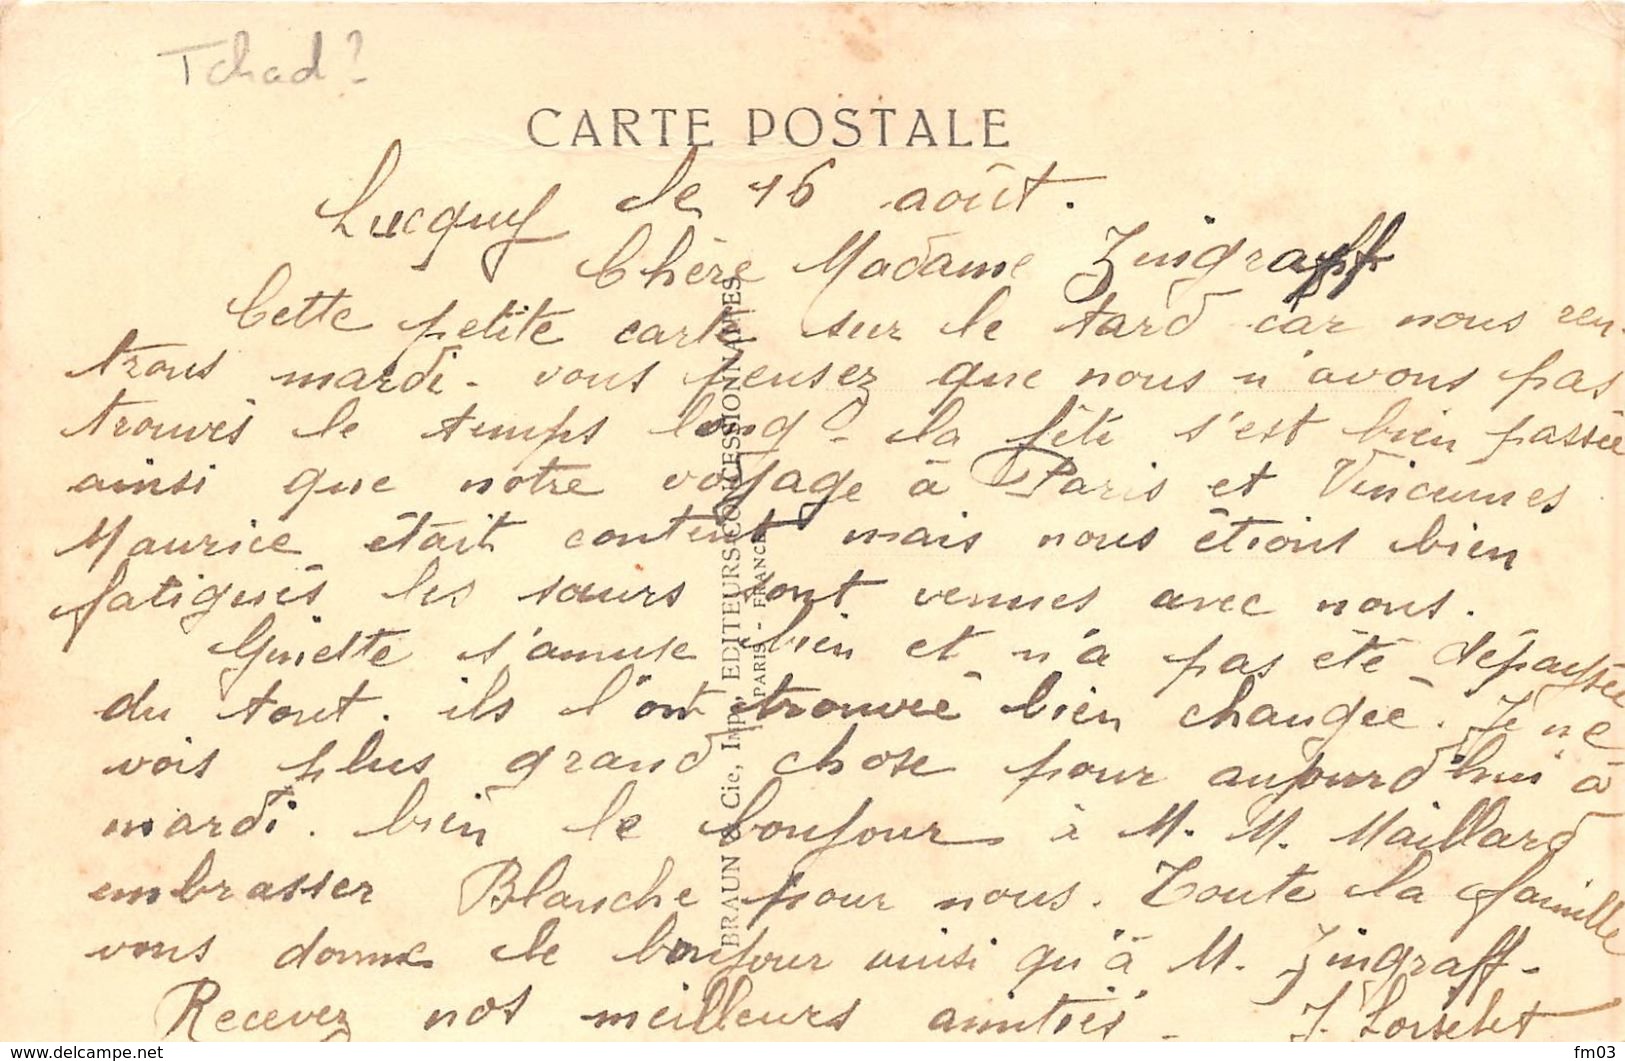 Tchad?
CARTE POSTALE
Lucquy le 16 août.
Chère Madame Zingraff
Cette petite carte sur le tard car nous ren-
trons mardi - vous pensez que nous n'avons pas
trouvés le temps long - la fête s'est bien passée
ainsi que notre voyage à Paris et Vincennes
Maurice était content mais nous étions bien
fatigués les sœurs sont venues avec nous.
s'amuse bien et n'a pas été dépaysée
du tout. ils l'ont trouvée bien changée. Je ne
vois plus grand chose pour aujourd'hui à
mardi. bien le bonjour à M. M. Maillard
embrasser Blanche pour nous. Toute la famille
vous donne le bonjour ainsi qu'à M. Zingraff -
Recevez nos meilleurs amitiés - J. Loiselet
BRAUN & Cie, Imp., EDITEURS-CONCESSIONNAIRES
PARIS - FRANCE
delcampe.net
fm03